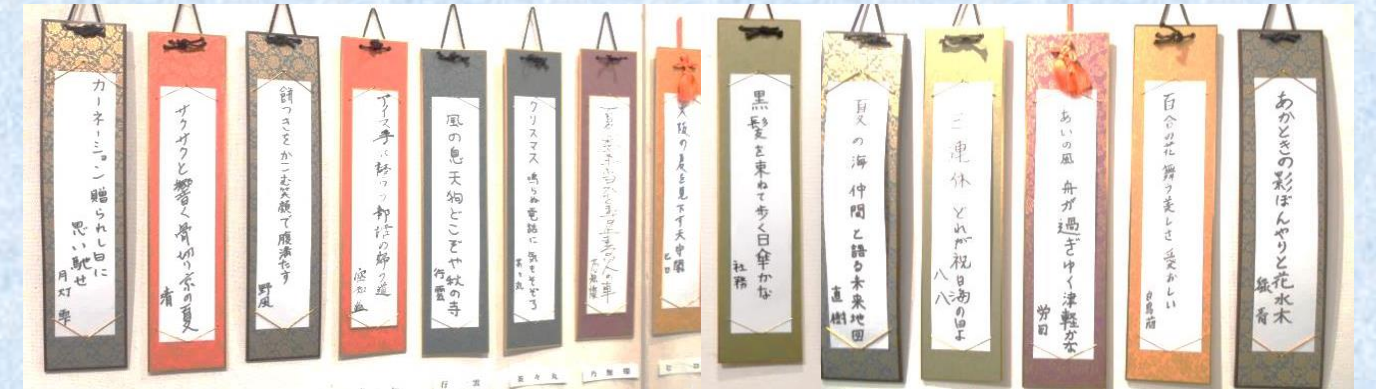 カーネーション贈られし日に
思い馳せ
月灯 雫
サクサクと響く骨切り京の夏
清
餅つきをかこむ笑顔で腹満たす
野風
アイス手に語りつ部活の帰り道
風の息天狗どこぞや秋の寺
行雲
クリスマス 鳴らぬ電話に 気もそぞろ
茶々丸
大阪の夏を見下す天守閣
黒髪を束ねて歩く日傘かな
社務
夏の海 仲間と語る未来地図
直樹
三連休 どれが祝日海の日よ
八八
あいの風 舟が過ぎゆく津軽かな
労目
百合の花 舞う美しさ 愛おしい
白鳥蘭
あかときの影ぼんやりと花水木
行 雲
茶 々 丸